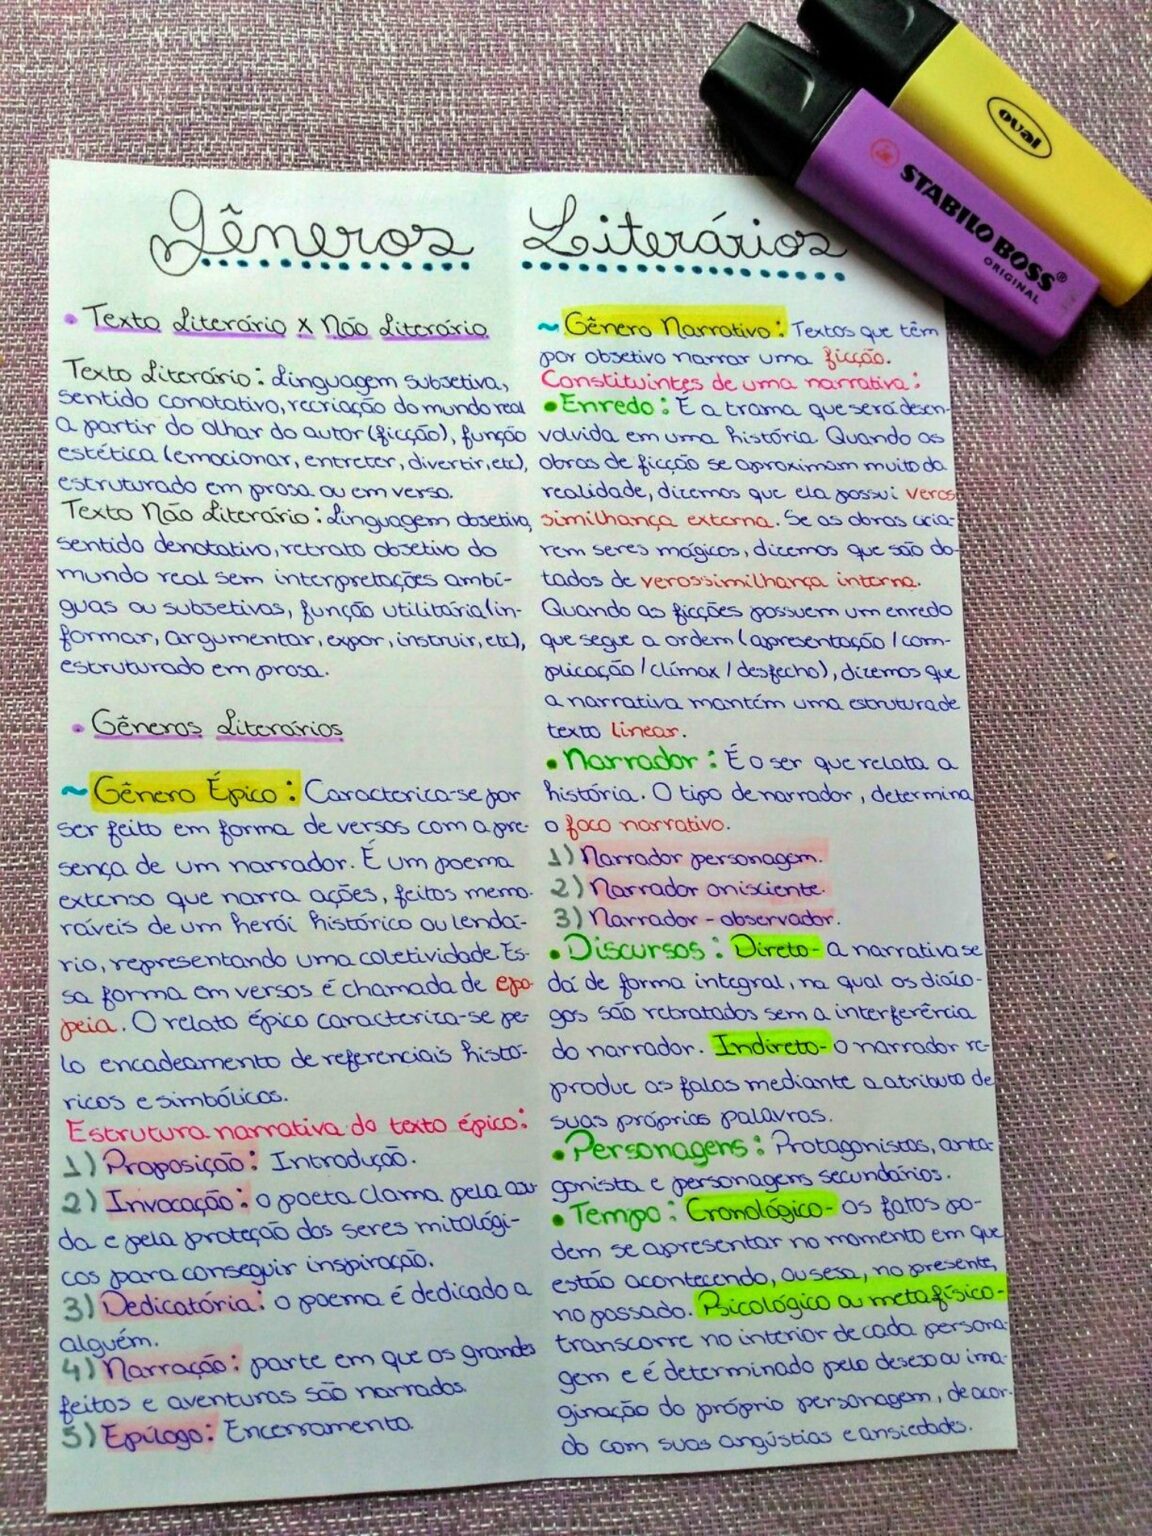 Gêneros Literários
• Texto Literário x Não Literário
Texto Literário: Linguagem subjetiva,
sentido conotativo, recriação do mundo real
a partir do olhar do autor (ficção), função
estética (emocionar, entreter, divertir, etc),
estruturado em prosa ou em verso.
Texto Não Literário: Linguagem objetiva,
sentido denotativo, retrato objetivo do
mundo real sem interpretações ambí-
guas ou subjetivas, função utilitária (in-
formar, argumentar, expor, instruir, etc),
estruturado em prosa.
• Gêneros Literários
~ Gênero Épico: Caracteriza-se por
ser feito em forma de versos com a pre-
sença de um narrador. É um poema
extenso que narra ações, feitos memo-
ráveis de um herói histórico ou lendá-
rio, representando uma coletividade. Es-
sa forma em versos é chamada de epo-
peia. O relato épico caracteriza-se pe-
lo encadeamento de referenciais histó-
ricos e simbólicos.
Estrutura narrativa do texto épico:
1) Proposição: Introdução.
2) Invocação: o poeta clama pela aju-
da e pela proteção dos seres mitológi-
cos para conseguir inspiração.
3) Dedicatória: o poema é dedicado a
alguém.
4) Narração: parte em que os grandes
feitos e aventuras são narrados.
5) Epílogo: Encerramento.
~ Gênero Narrativo: Textos que têm
por objetivo narrar uma ficção.
Constituintes de uma narrativa:
• Enredo: É a trama que será desen-
volvida em uma história. Quando as
obras de ficção se aproximam muito da
realidade, dizemos que ela possui veros
similhança externa. Se as obras cria-
rem seres mágicos, dizemos que são do-
tados de verossimilhança interna.
Quando as ficções possuem um enredo
que segue a ordem (apresentação / com-
plicação / clímax / desfecho), dizemos que
a narrativa mantém uma estrutura de
texto linear.
• Narrador: É o ser que relata a
história. O tipo de narrador, determina
o foco narrativo.
1) Narrador personagem.
2) Narrador onisciente.
3) Narrador - observador.
• Discursos: Direto- a narrativa se
dá de forma integral, na qual os diálo-
gos são retratados sem a interferência
do narrador. Indireto- o narrador re-
produz as falas mediante a atributo de
suas próprias palavras.
• Personagens: Protagonistas, anta-
gonista e personagens secundários.
• Tempo: Cronológico- os fatos po-
dem se apresentar no momento em que
estão acontecendo, ou seja, no presente,
no passado. Psicológico ou metafísico-
transcorre no interior de cada persona-
gem e é determinado pelo desejo ou ima-
ginação do próprio personagem, de acor-
do com suas angústias e ansiedades.
oval
STABILO BOSS®
ORIGINAL